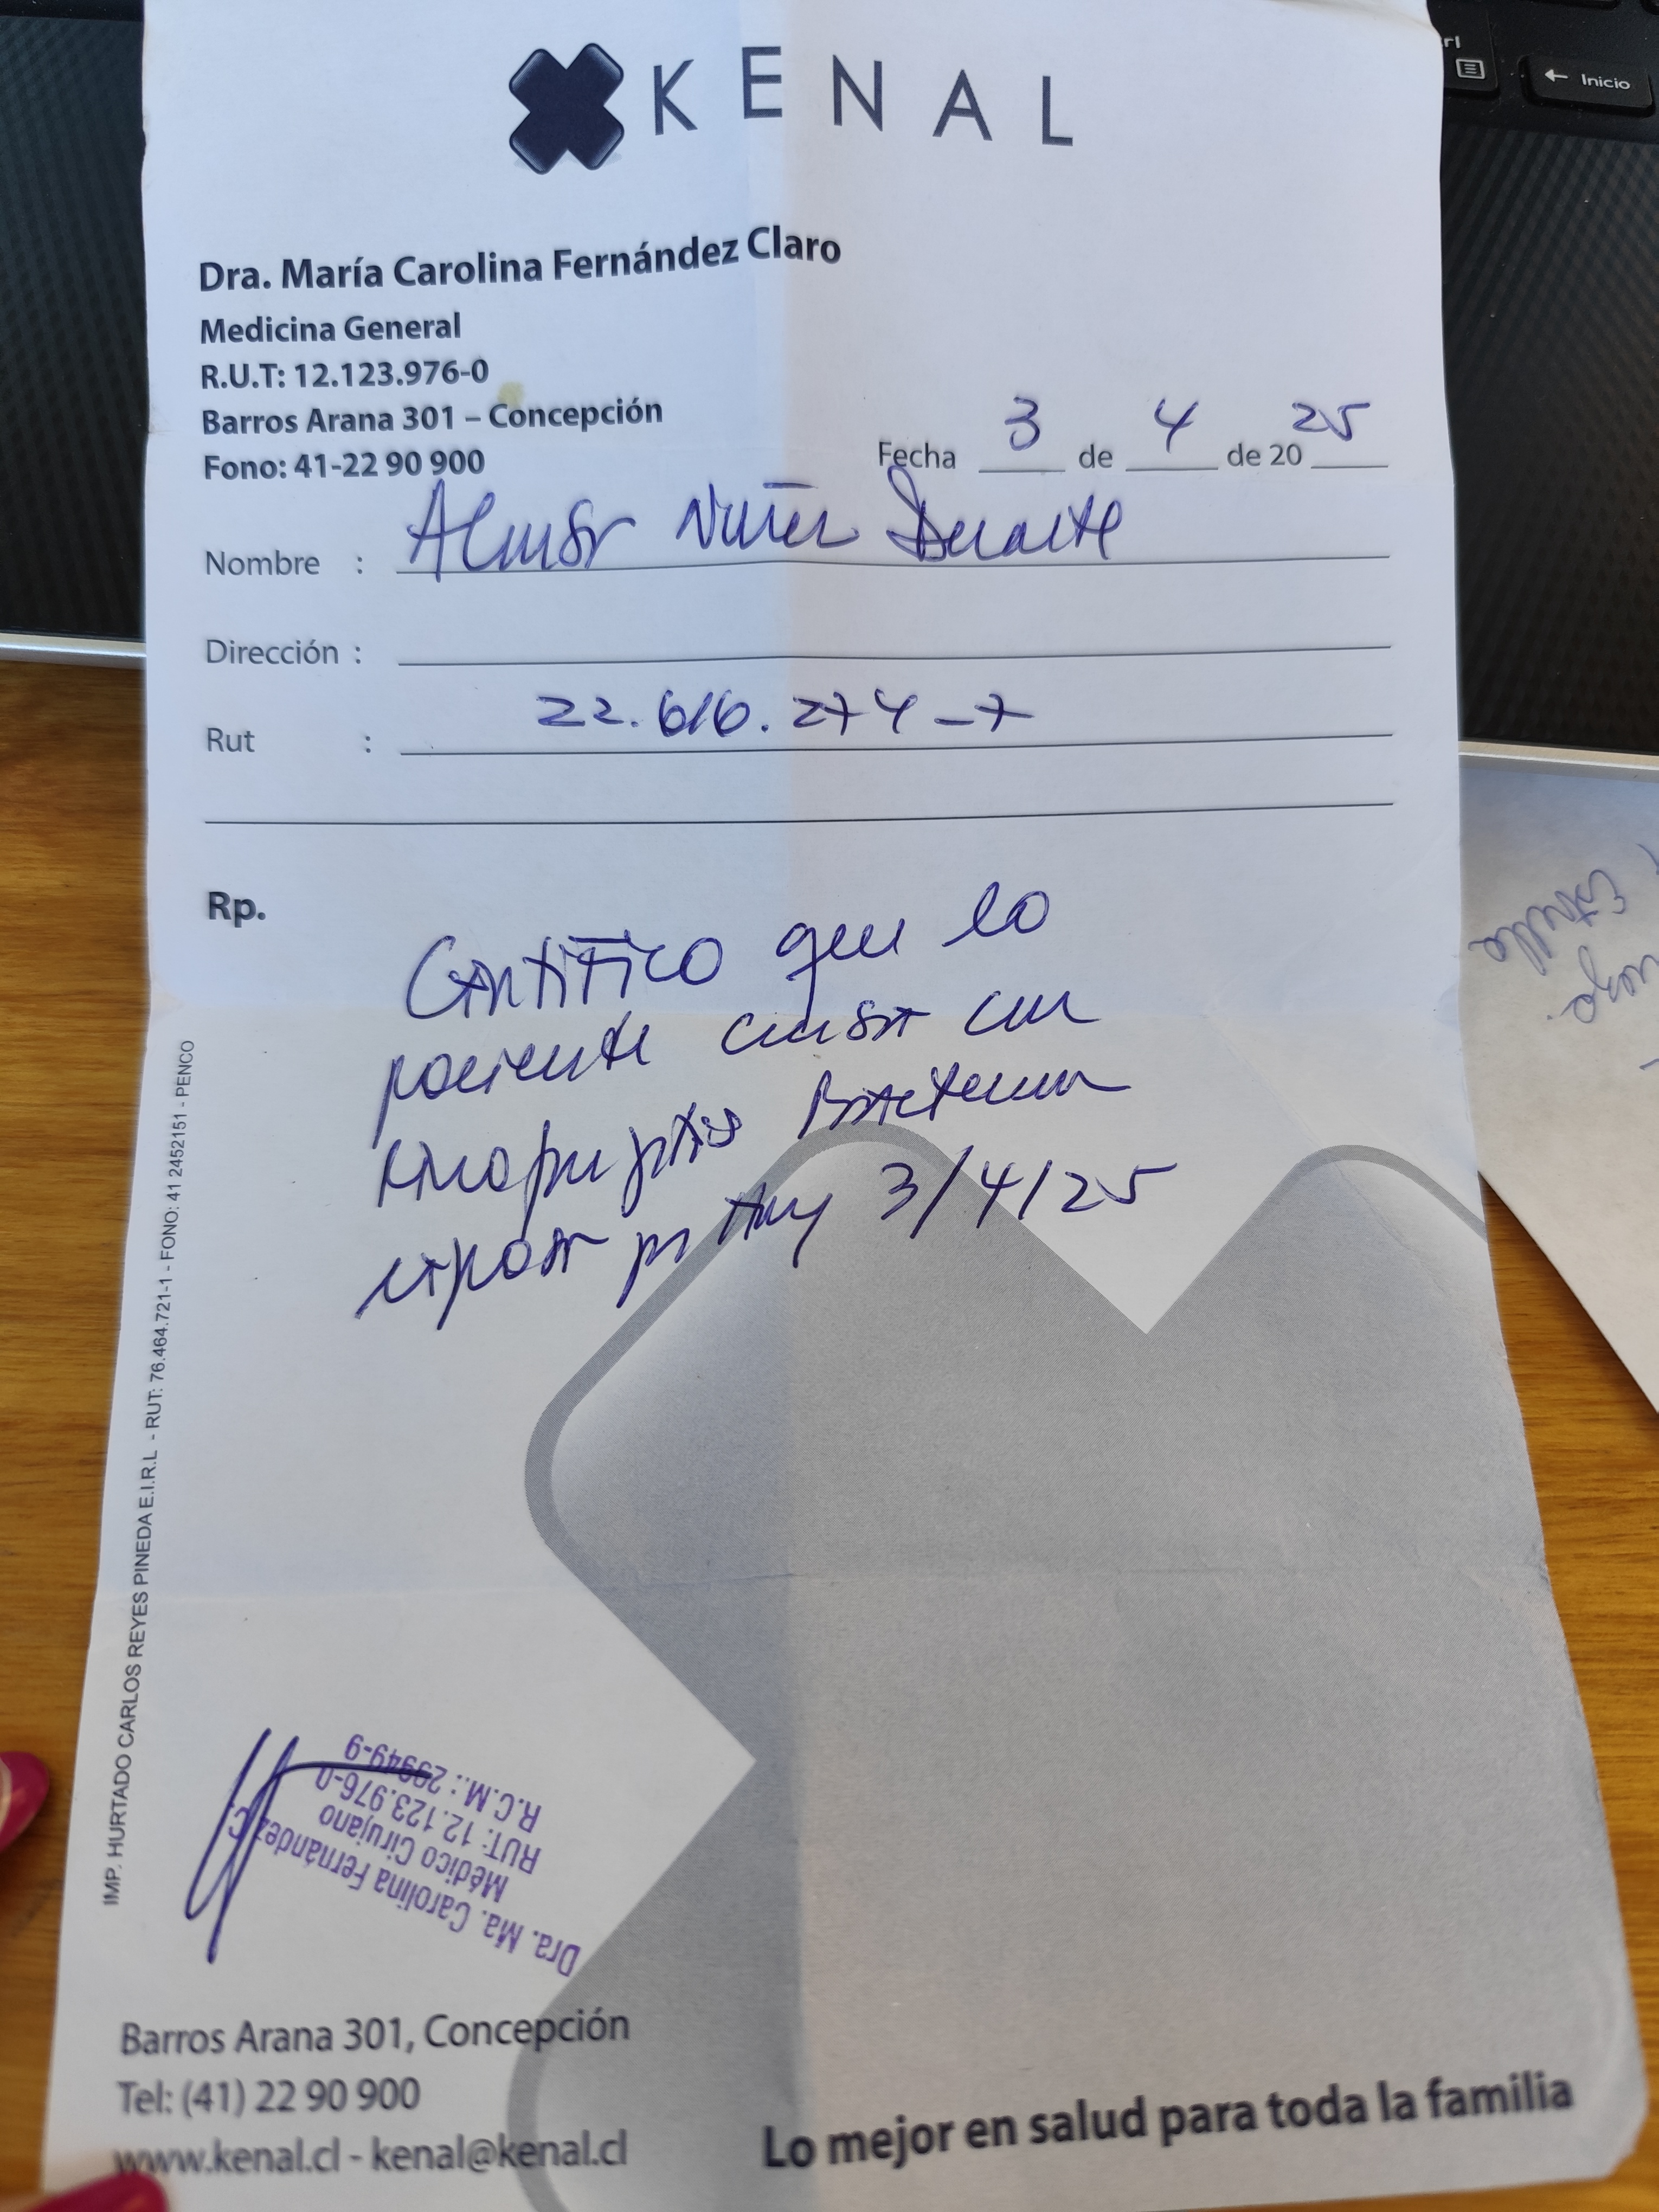 KENAL
Dra. María Carolina Fernández Claro
Medicina General
R.U.T: 12.123.976-0
Barros Arana 301 – Concepción
Fono: 41-22 90 900
Fecha 3 de 4 de 20 25
Nombre : Núñez Duarte
Dirección :
Rut : 22.616.274-7
Rp.
Certifico que la
paciente cursa con
Bacteriana
reposo por hoy 3/4/25
IMP. HURTADO CARLOS REYES PINEDA E.I.R.L - RUT: 76.464.721-1 - FONO: 41 2452151 - PENCO
Dra. Ma. Carolina Fernández C.
Médico Cirujano
RUT: 12.123.976-0
R.C.M.: 29949-9
Barros Arana 301, Concepción
Tel: (41) 22 90 900
www.kenal.cl - kenal@kenal.cl
Lo mejor en salud para toda la familia
Inicio
Estrella